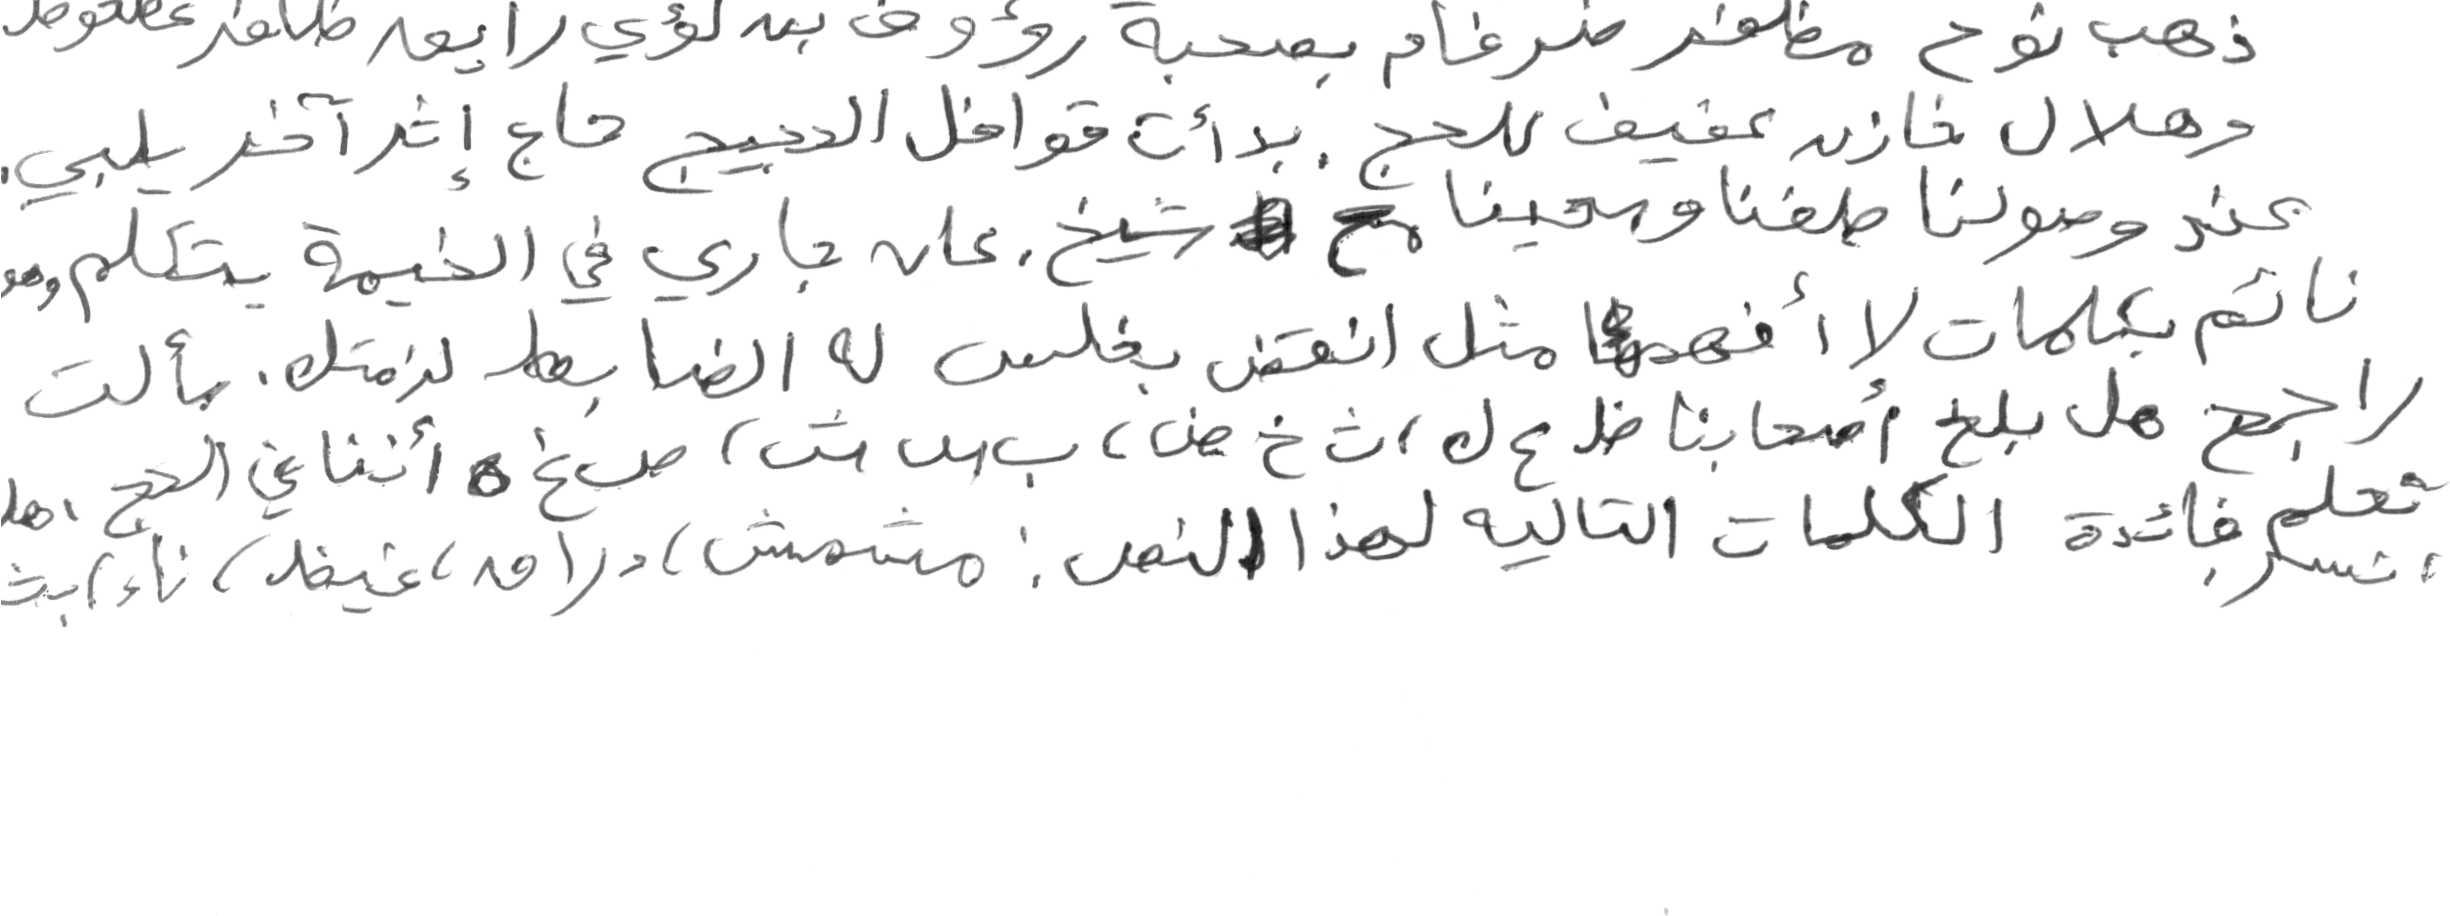 ذهب نوح مظفر ضرغام بصحبة رؤوف بن لؤي رايق ظافر عطعوط
وهلال خازن عفيف للحج . بدأت قوافل الحجيج حاج إثر آخر يلبي .
عند وصولنا طفنا وسعينا مع شيخ . كان جاري في الخيمة يتكلم وهو
نائم بكلمات لا أفهمها مثل انقض بخلس له الضابط لزمتك . سألت
راجح هل بلغ أصحابنا ظ ع ك ، ث خ ض ، ب س ش ، ص غ ه أننا في الحج ، هل
تعلم فائدة الكلمات التالية لهذا النص : مشمش ، دراق ، غيظ ، ناء ، بث
، نسر